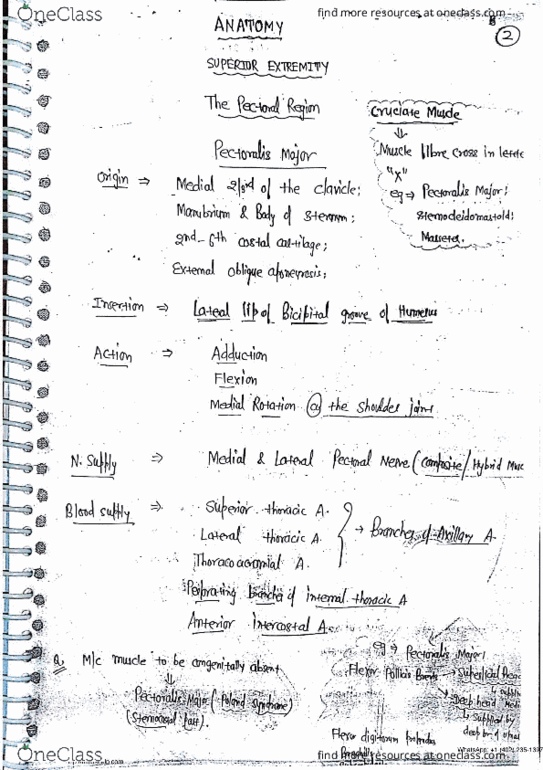 OneClass
find more resources at oneclass.com
2
ANATOMY
SUPERIOR EXTREMITY
The Pectoral Region
Cruciate Muscle
⇓
Muscle fibre cross in letter
"X"
eg → Pectoralis Major;
sternocleidomastoid;
Masseter.
Pectoralis Major
Origin ⇒ Medial 2/3rd of the clavicle;
Manubrium & Body of sternum;
2nd-6th costal cartilage;
External oblique aponeurosis;
Insertion ⇒ Lateral lip of Bicipital groove of Humerus
Action ⇒ Adduction
Flexion
Medial Rotation @ the shoulder joint
N. Supply ⇒ Medial & Lateral Pectoral Nerve (Composite/Hybrid Musc
Blood supply ⇒ Superior thoracic A.
Lateral thoracic A.
Thoraco acromial A.
→ Branches of Axillary A.
Perforating branches of internal thoracic A
Anterior Intercostal A.
Q. M/c muscle to be congenitally absent
⇓
Pectoralis Major (Poland Syndrome)
(Sternocostal part).
eg → Pectoralis Major
Flexor Pollicis Brevis → Superficial
↳ supplied by
Flexor digitorum
OneClass
find more resources at oneclass.com